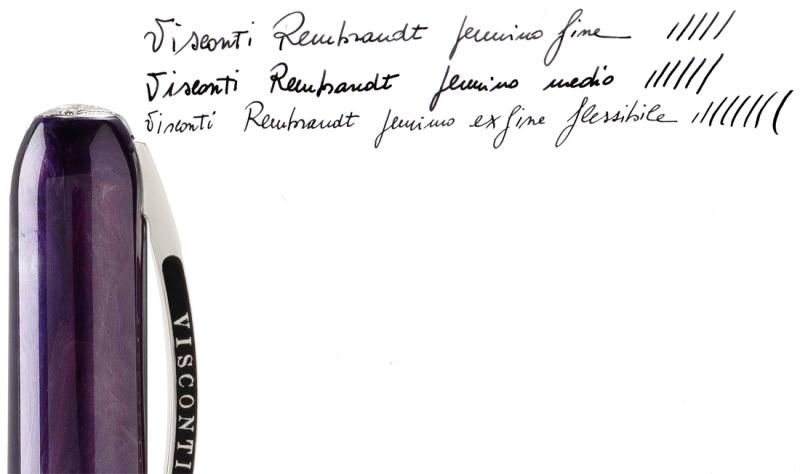 Visconti Rembrandt pennino fine
Visconti Rembrandt pennino medio
Visconti Rembrandt pennino exfine flessibile
VISCONTI